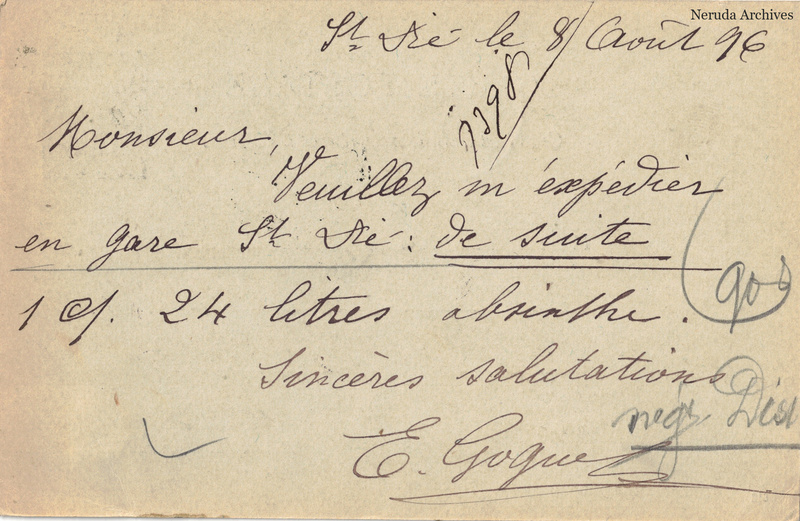 Neruda Archives
St Dié le 8 Août 96
7398
Monsieur,
Veuillez m'éxpédier
en gare St Dié: de suite
1 c/. 24 litres absinthe.
Sincères salutations
E. Goguel